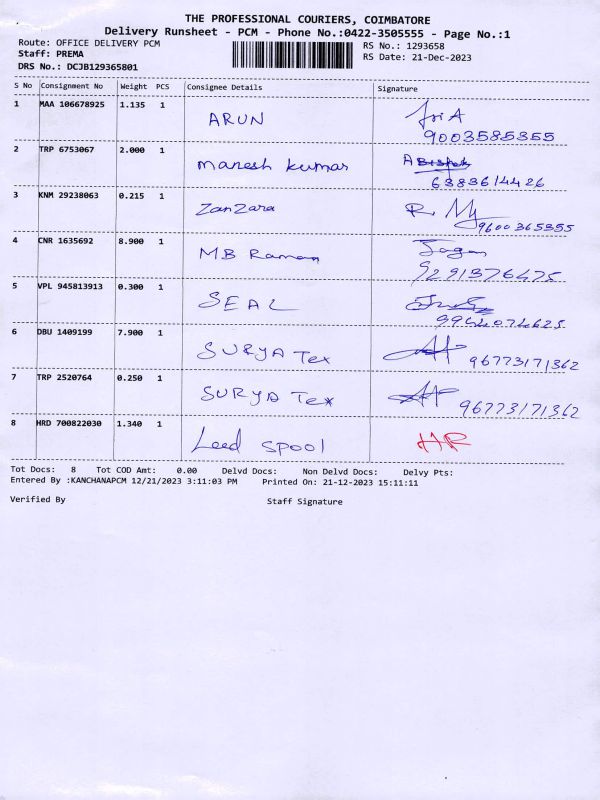 THE PROFESSIONAL COURIERS, COIMBATORE
Delivery Runsheet - PCM - Phone No.:0422-3505555 - Page No.:1
Route: OFFICE DELIVERY PCM
Staff: PREMA
DRS No.: DCJB129365801
RS No.: 1293658
RS Date: 21-Dec-2023
S No Consignment No Weight PCS Consignee Details Signature
1 MAA 106678925 1.135 1 ARUN
9003585355
2 TRP 6753067 2.000 1 Manesh Kumar
6383614426
3 KNM 29238063 0.215 1 ZanZara R.
9600365355
4 CNR 1635692 8.900 1 MB Raman Jagan
9291376475
5 VPL 945813913 0.300 1 SEAL
9944074625
6 DBU 1409199 7.900 1 SURYA Tex 96773171362
7 TRP 2520764 0.250 1 SURYA Tex 96773171362
8 HRD 700822030 1.340 1 Leed SPOOL HR
Tot Docs: 8 Tot COD Amt: 0.00 Delvd Docs: Non Delvd Docs: Delvy Pts:
Entered By :KANCHANAPCM 12/21/2023 3:11:03 PM Printed On: 21-12-2023 15:11:11
Verified By Staff Signature